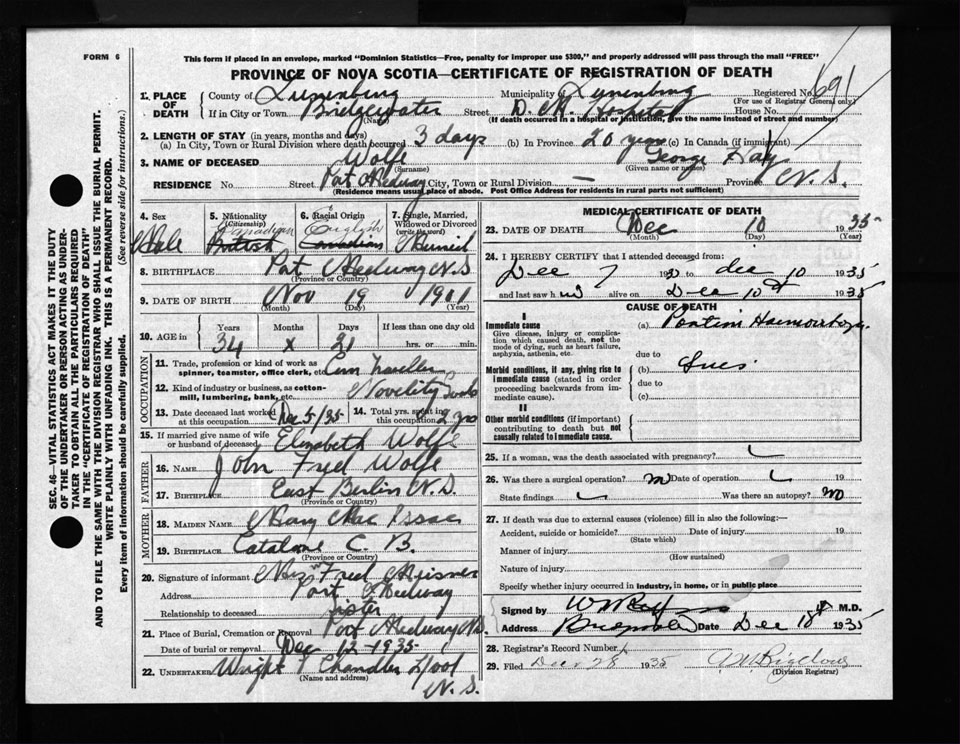 FORM 6
This form if placed in an envelope, marked "Dominion Statistics—Free, penalty for improper use $300," and properly addressed will pass through the mail "FREE"
PROVINCE OF NOVA SCOTIA—CERTIFICATE OF REGISTRATION OF DEATH
1. PLACE OF DEATH
County of Lunenburg Municipality of Lunenburg Registered No. 691
(For use of Registrar General only)
If in City or Town Bridgewater Street D. M. Hospital House No.
(Name) (If death occurred in a hospital or institution, give the name instead of street and number)
2. LENGTH OF STAY (in years, months and days)
(a) In City, Town or Rural Division where death occurred 3 days (b) In Province 20 years (c) In Canada (if immigrant)
3. NAME OF DECEASED Wolfe George
(Surname) (Given name or names)
RESIDENCE No. Street Port Medway City, Town or Rural Division — Province N. S.
(Residence means usual place of abode. Post Office Address for residents in rural parts not sufficient)
4. Sex Male
5. Nationality (Citizenship) Canadian British
6. Racial Origin English Canadian
7. Single, Married, Widowed or Divorced (write the word) Married
8. BIRTHPLACE Port Medway N. S
(Province or Country)
9. DATE OF BIRTH Nov 19 1901
(Month) (Day) (Year)
10. AGE in Years 34 Months x Days 21 If less than one day old hrs. or min.
OCCUPATION
11. Trade, profession or kind of work as spinner, teamster, office clerk, etc. Com Traveller
12. Kind of industry or business, as cotton-mill, lumbering, bank, etc. Novelity Goods
13. Date deceased last worked at this occupation Dec 5/35 14. Total yrs. spent in this occupation 2 yrs
15. If married give name of wife or husband of deceased Elizabeth Wolfe
FATHER
16. NAME John Fred Wolfe
17. BIRTHPLACE East Berlin N. S.
(Province or Country)
MOTHER
18. MAIDEN NAME Mary Mac Issac
19. BIRTHPLACE Catalone C. B.
(Province or Country)
20. Signature of informant Mrs Fred Meisner
Address Port Medway
Relationship to deceased Sister
21. Place of Burial, Cremation or Removal Port Medway N.S.
Date of burial or removal Dec 12 - 1935
22. UNDERTAKER Wright Chandler N. S.
(Name and address)
MEDICAL CERTIFICATE OF DEATH
23. DATE OF DEATH Dec 10 1935
(Month) (Day) (Year)
24. I HEREBY CERTIFY that I attended deceased from:
Dec 7 19 to dec 10 1935
and last saw him alive on Dec 10th 1935
CAUSE OF DEATH
I
Immediate cause (a) Pontine Haemorrhage
Give disease, injury or complication which caused death, not the mode of dying, such as heart failure, asphyxia, asthenia, etc.
due to
Morbid conditions, if any, giving rise to immediate cause (stated in order proceeding backwards from immediate cause). (b) Lues
due to
(c)
II
Other morbid conditions (if important) contributing to death but not causally related to immediate cause.
25. If a woman, was the death associated with pregnancy?
26. Was there a surgical operation? no Date of operation
State findings Was there an autopsy? no
27. If death was due to external causes (violence) fill in also the following:—
Accident, suicide or homicide? Date of injury 19
(State which)
Manner of injury
(How sustained)
Nature of injury
Specify whether injury occurred in industry, in home, or in public place
Signed by M.D.
Address Date Dec 18th 1935
28. Registrar's Record Number
29. Filed Dec 28 1935
(Division Registrar)
SEC. 46—VITAL STATISTICS ACT MAKES IT THE DUTY
OF THE UNDERTAKER OR PERSON ACTING AS UNDER-
TAKER TO OBTAIN ALL THE PARTICULARS REQUIRED
IN THE "CERTIFICATE OF REGISTRATION OF DEATH"
AND TO FILE THE SAME WITH THE DIVISION REGISTRAR WHO SHALL ISSUE THE BURIAL PERMIT.
WRITE PLAINLY WITH UNFADING INK. THIS IS A PERMANENT RECORD.
Every item of information should be carefully supplied. (See reverse side for instructions.)